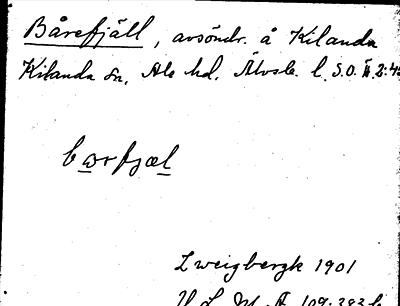 Bårefjäll, avsöndr. å Kilanda
Kilanda sn, Ale hd, Älvsb. l. S.O. II 2:4
bωrfjæl
Zweigbergk 1901
U L M A 109:383 b